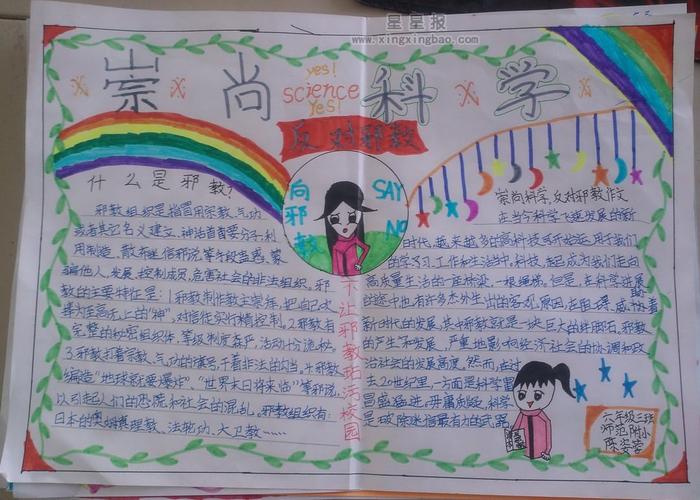 星星报
www.xingxingbao.com
崇尚科学
yes!
science
yes!
反对邪教
什么是邪教?
邪教组织是指冒用宗教、气功
或者其它名义建立、神话首要分子,利
用制造、散布迷信邪说等手段蛊惑、蒙
骗他人,发展、控制成员,危害社会的非法组织。邪
教的主要特征是:1.邪教制作教主崇拜,把自己吹
捧为至高无上的"神",对信徒实行精神控制。2.邪教有
完整的秘密组织体,等级制度森严,活动十分诡秘。
3.邪教打着宗教、气功的幌子,干着非法的勾当。4.邪教
编造"地球就要爆炸"、"世界末日将来临"等邪说,
以引起人们的恐慌和社会的混乱。邪教组织有:
日本的奥姆真理教、法轮功、大卫教……
向邪教
SAY
NO
不让邪教玷污校园
崇尚科学,反对邪教作文
在当今科学飞速发展的新
时代,越来越多的高科技
的学习、工作和生活当中,科技
高质量生活的一座桥梁、一根绳梯。但是,在科学进展
新时代的发展,其中邪教就是一块巨大的绊脚石。邪教
的产生和发展,严重地影响经济社会的协调和政
治社会的发展高度。然而,在过
去20世纪里,一方面是科学冒
是破除迷信最有力的武器
六年级三班
师范附小
陈姿蓉